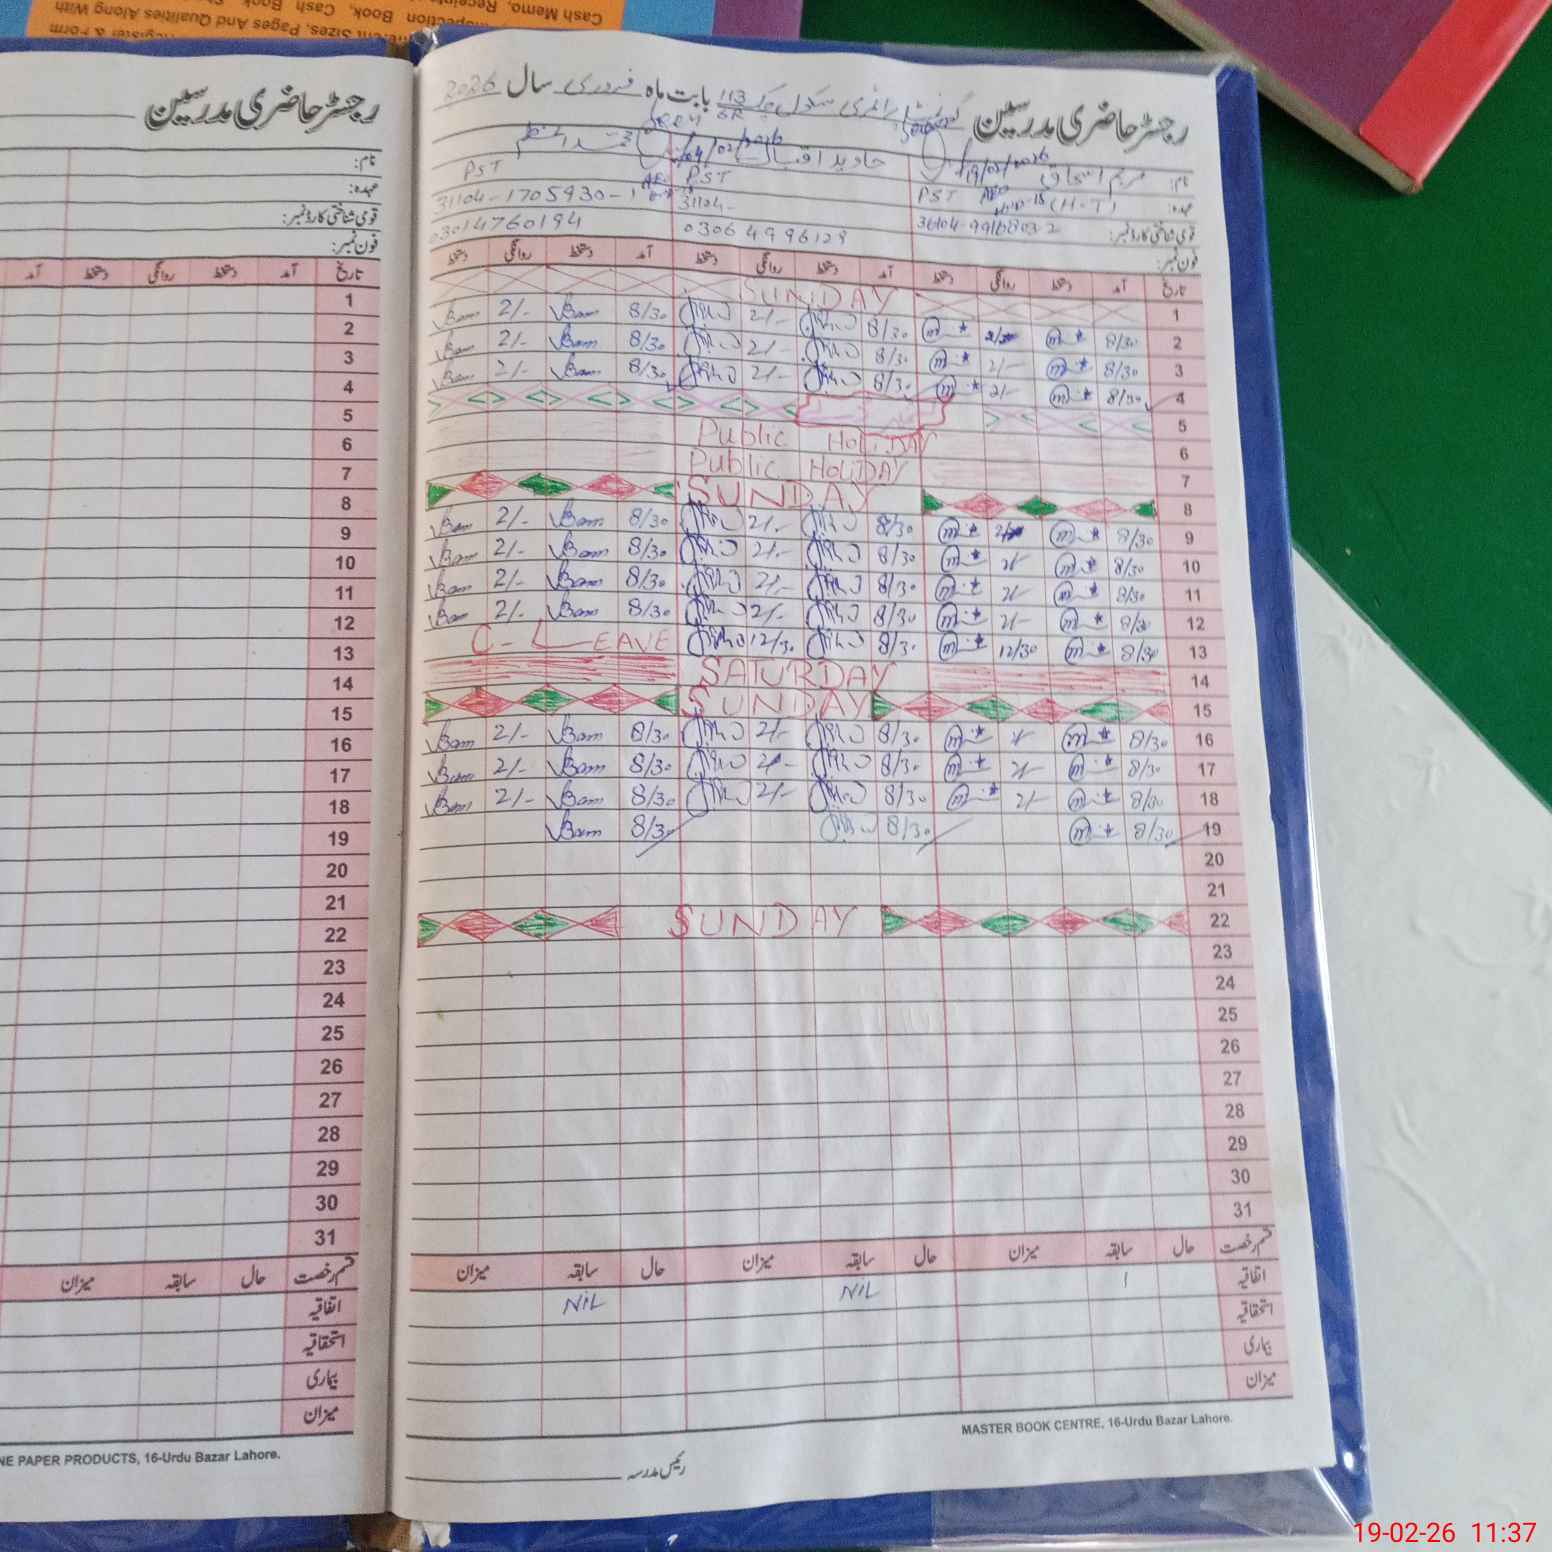 Cash Memo, Receipt
Inspection Book, Cash Book
Different Sizes, Pages And Qualities Along With
Register & Form
رجسٹر حاضری مدرسین
نام:
عہدہ:
قومی شناختی کارڈ نمبر:
فون نمبر:
تاریخ آمد دستخط روانگی دستخط آمد
1
2
3
4
5
6
7
8
9
10
11
12
13
14
15
16
17
18
19
20
21
22
23
24
25
26
27
28
29
30
31
قسم رخصت حال سابقہ میزان
اتفاقیہ
استحقاقیہ
بیماری
میزان
NE PAPER PRODUCTS, 16-Urdu Bazar Lahore.
رجسٹر حاضری مدرسین گورنمنٹ پرائمری سکول چک 113 6R بابت ماہ فروری سال 2026
نام: مریم اسحاق 19/02/2026 جاوید اقبال 04/02/2026 محمد اعظم
عہدہ: PST (H-T) PST PST
قومی شناختی کارڈ نمبر: 31104- 31104-1705930-1
فون نمبر: 0306 4996129 03014760194
تاریخ آمد دستخط روانگی دستخط آمد دستخط روانگی دستخط آمد دستخط روانگی دستخط
1 SUNDAY
2 8/30 8/30 2/- 8/30 Bam 2/- Bam
3 8/30 2/- 8/30 2/- 8/30 Bam 2/- Bam
4 8/30 2/- 8/30 2/- 8/30 Bam 2/- Bam
5
6 Public HOLIDAY
7 Public HOLIDAY
8 SUNDAY
9 8/30 8/30 2/- 8/30 Bam 2/- Bam
10 8/30 2/- 8/30 2/- 8/30 Bam 2/- Bam
11 8/30 2/- 8/30 2/- 8/30 Bam 2/- Bam
12 8/30 2/- 8/30 2/- 8/30 Bam 2/- Bam
13 8/30 12/30 8/30 12/30 C-LEAVE
14 SATURDAY
15 SUNDAY
16 8/30 8/30 2/- 8/30 Bam 2/- Bam
17 8/30 2/- 8/30 2/- 8/30 Bam 2/- Bam
18 8/30 2/- 8/30 2/- 8/30 Bam 2/- Bam
19 8/30 8/30 8/30 Bam
20
21
22 SUNDAY
23
24
25
26
27
28
29
30
31
قسم رخصت حال سابقہ میزان حال سابقہ میزان حال سابقہ میزان
اتفاقیہ 1 NIL NIL
استحقاقیہ
بیماری
میزان
MASTER BOOK CENTRE, 16-Urdu Bazar Lahore.
رئیس مدرسہ
19-02-26 11:37